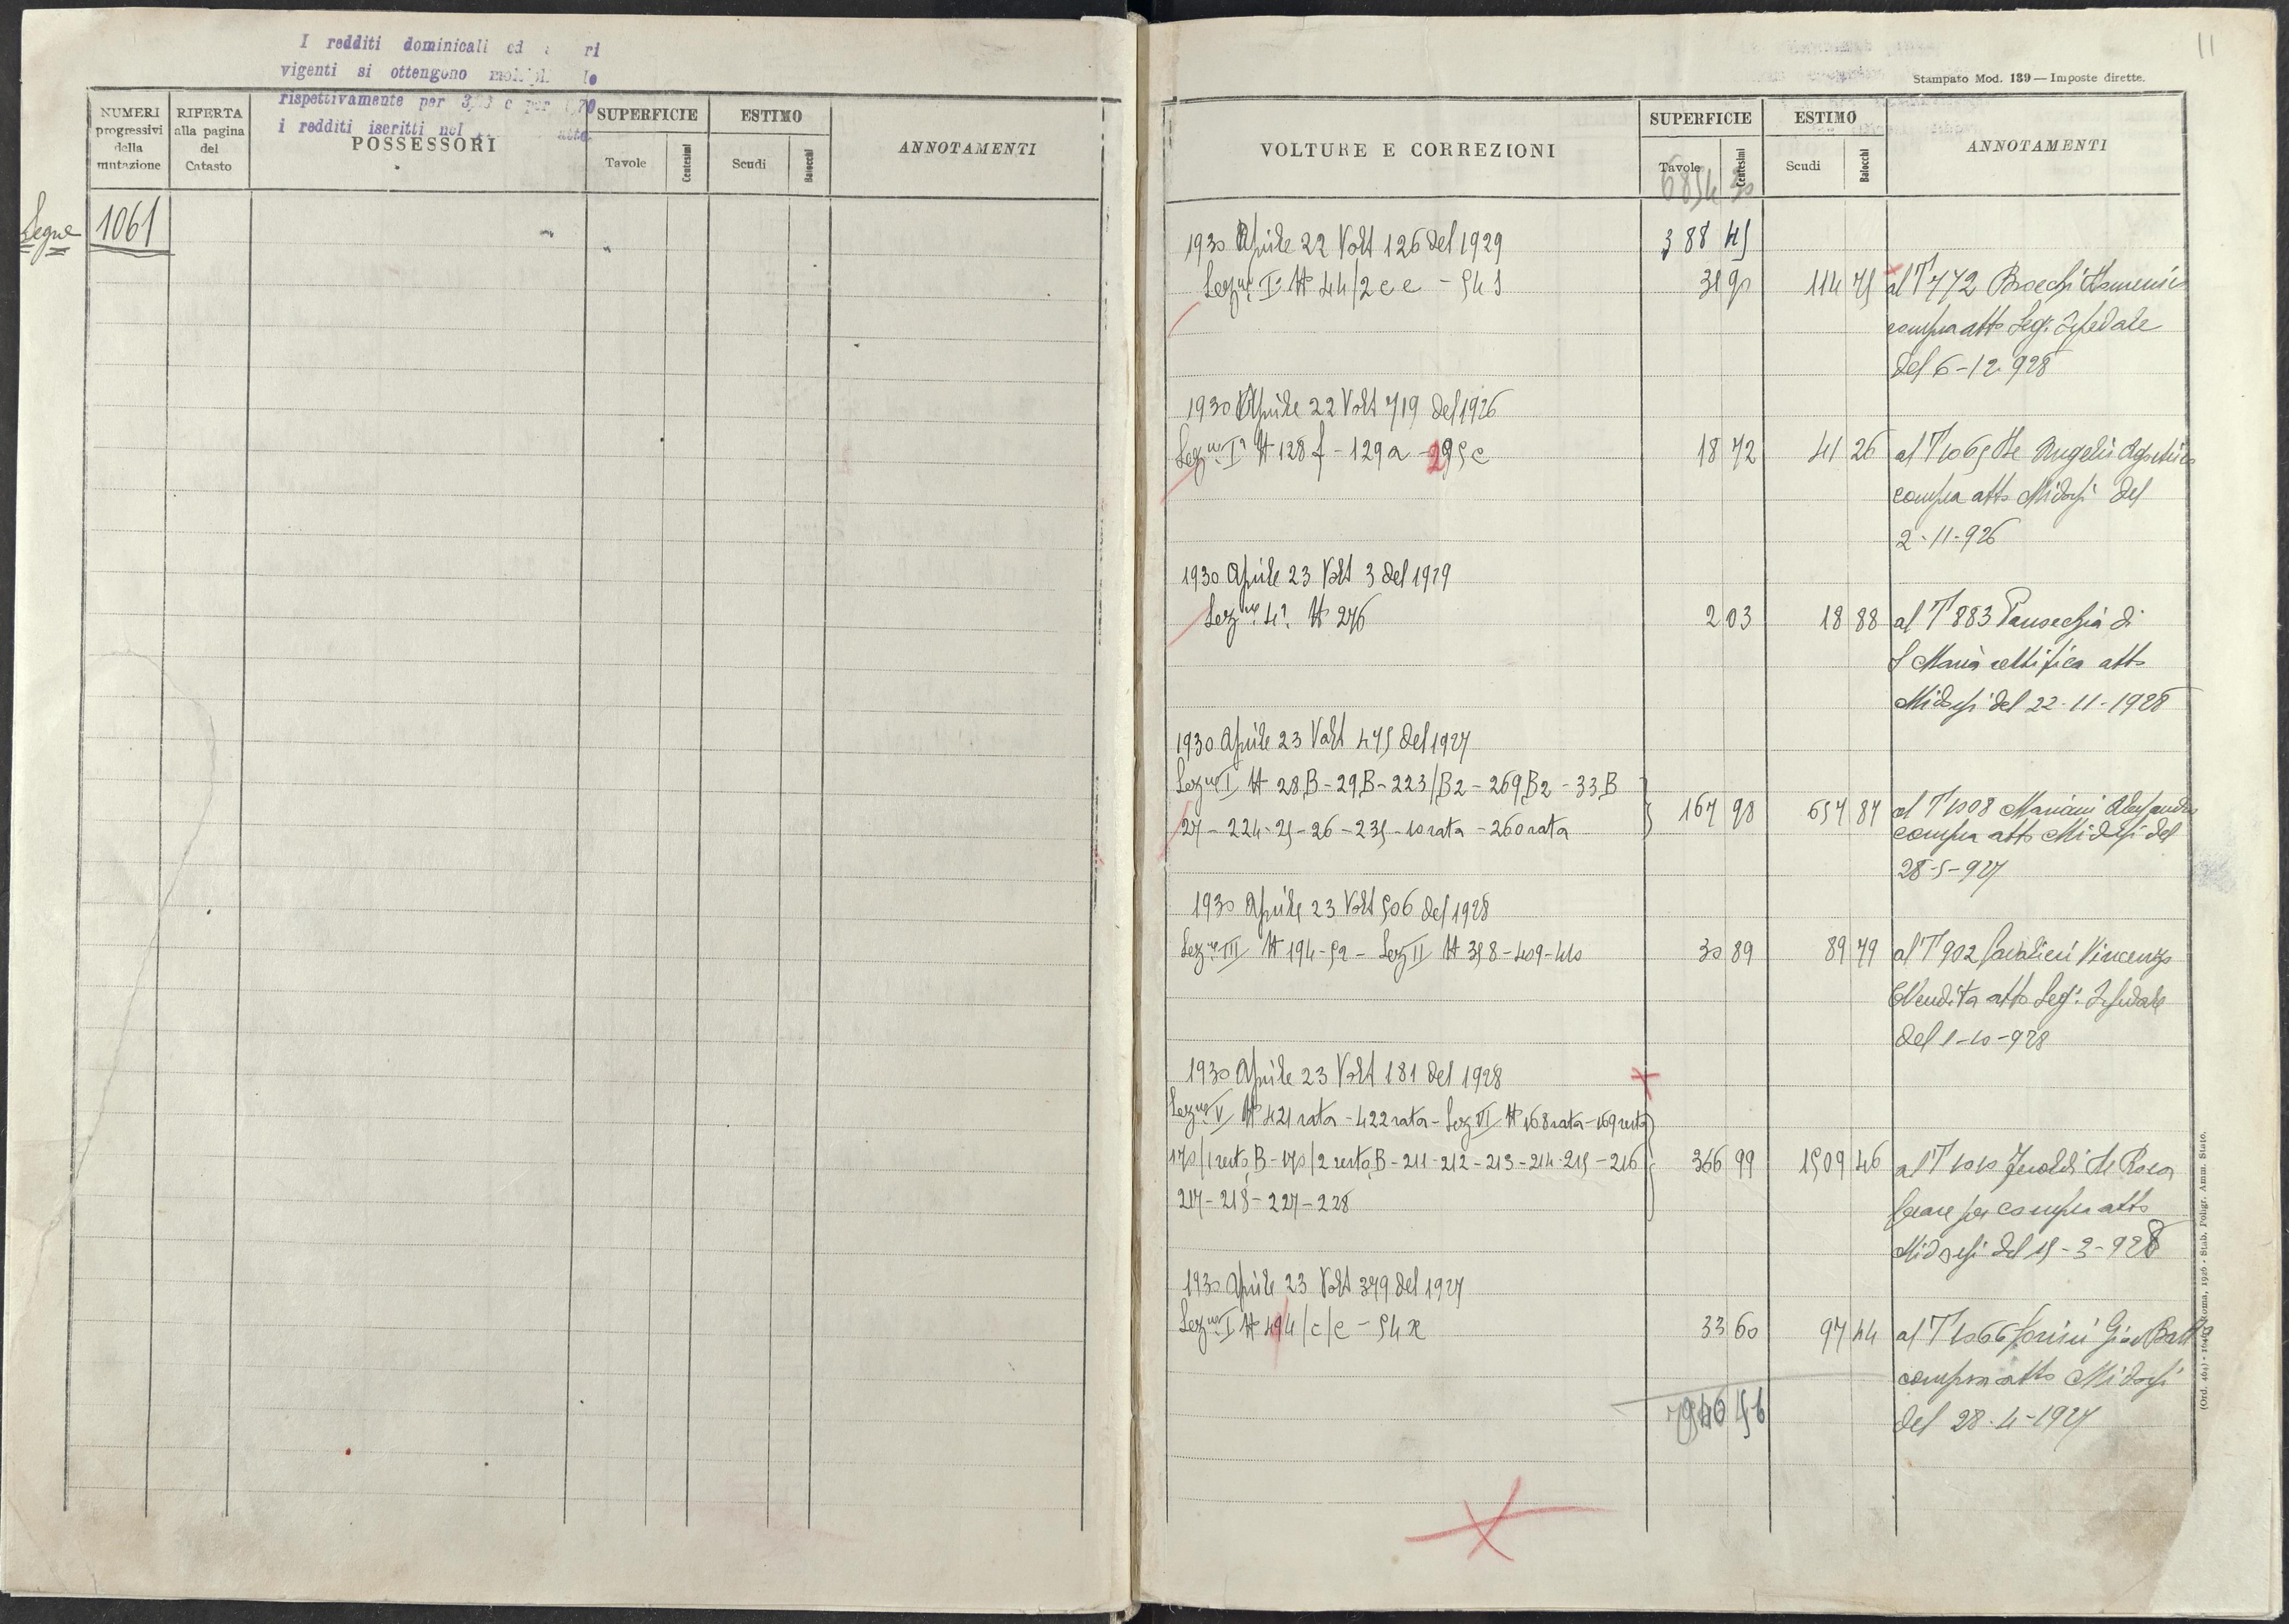 I redditi dominicali ed ri
vigenti si ottengono
rispettivamente per
i redditi iscritti nel
NUMERI progressivi della mutazione
RIFERTA alla pagina del Catasto
POSSESSORI
SUPERFICIE
Tavole
Centesimi
ESTIMO
Scudi
Baiocchi
ANNOTAMENTI
Segue 1061
11
Stampato Mod. 139 — Imposte dirette.
VOLTURE E CORREZIONI
SUPERFICIE
Tavole
Centesimi
ESTIMO
Scudi
Baiocchi
ANNOTAMENTI
1930 Aprile 22 Volt 126 del 1929 388 45
Sezne I 44/2 c e - 54 31 90 114 75 al T 772 Domenico
compra atto Segr.
del 6-12-928
1930 Aprile 22 Volt 719 del 1926
Sezne Ia N 128 f - 129 a - 295 c 18 72 41 26 al T 1065 De Angelis
compra atto Midossi del
2-11-926
1930 Aprile 23 Volt 3 del 1929
Sezne 4a N 276 2 03 18 88 al T 883 Parrocchia di
S Maria rettifica atto
Midossi del 22-11-1928
1930 Aprile 23 Volt 475 del 1927
Sezne I N 28B - 29B - 223/B2 - 269B2 - 33B
27 - 224 - 25 - 26 - 235 - 10 rata - 260 rata 167 98 657 87 al T 1008 Mariani Alessandro
compra atto Midossi del
28-5-927
1930 Aprile 23 Volt 506 del 1928
Sezne III N 194-52 - Sez II N 358-409-410 30 89 89 79 al T 902 Cavalieri Vincenzo
Vendita atto Segr.
del 1-10-928
1930 Aprile 23 Volt 181 del 1928
Sezne V N 421 rata - 422 rata - Sez VI N 168 rata - 169 resto
170/1 resto B - 170/2 resto B - 211 - 212 - 213 - 214 - 215 - 216 366 99 1509 46 al T 1010 De Rosa
217 - 218 - 227 - 228
Cesare per compra atto
Midossi del 15-3-928
1930 Aprile 23 Volt 379 del 1927
Sezne I N 494/c/e - 54 x 33 60 97 44 al T 1066 Giov Batta
compra atto Midossi
del 28-4-1927